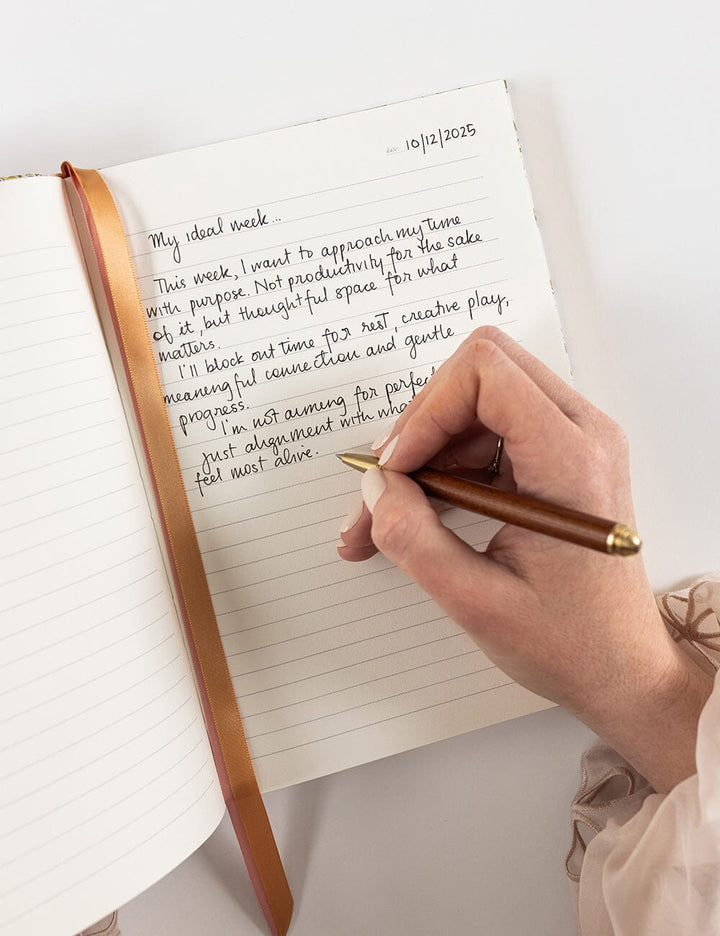 date: 10/12/2025
My ideal week...
This week, I want to approach my time
with purpose. Not productivity for the sake
of it, but thoughtful space for what
matters.
I'll block out time for rest, creative play,
meaningful connection and gentle
progress.
I'm not aiming for perfec
just alignment with wha
feel most alive.